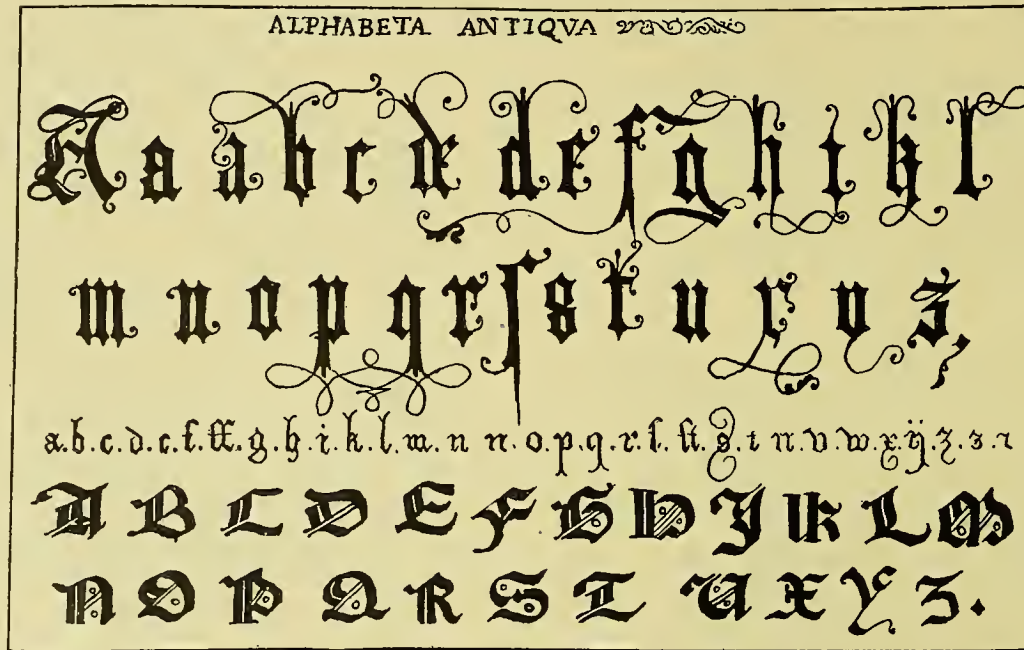 ALPHABETA ANTIQVA
A a a b c d d e f g h i k l
m n o p q r ſ s t u x v z
a.b.c.d.e.f.ff.g.h.i.k.l.m.n n.o.p.q.r.ſ.ſt.s.t u.v.w.x.ÿ.z.z.ꝛ
A B C D E F G H J K L M
N O P Q R S T U X Y Z.